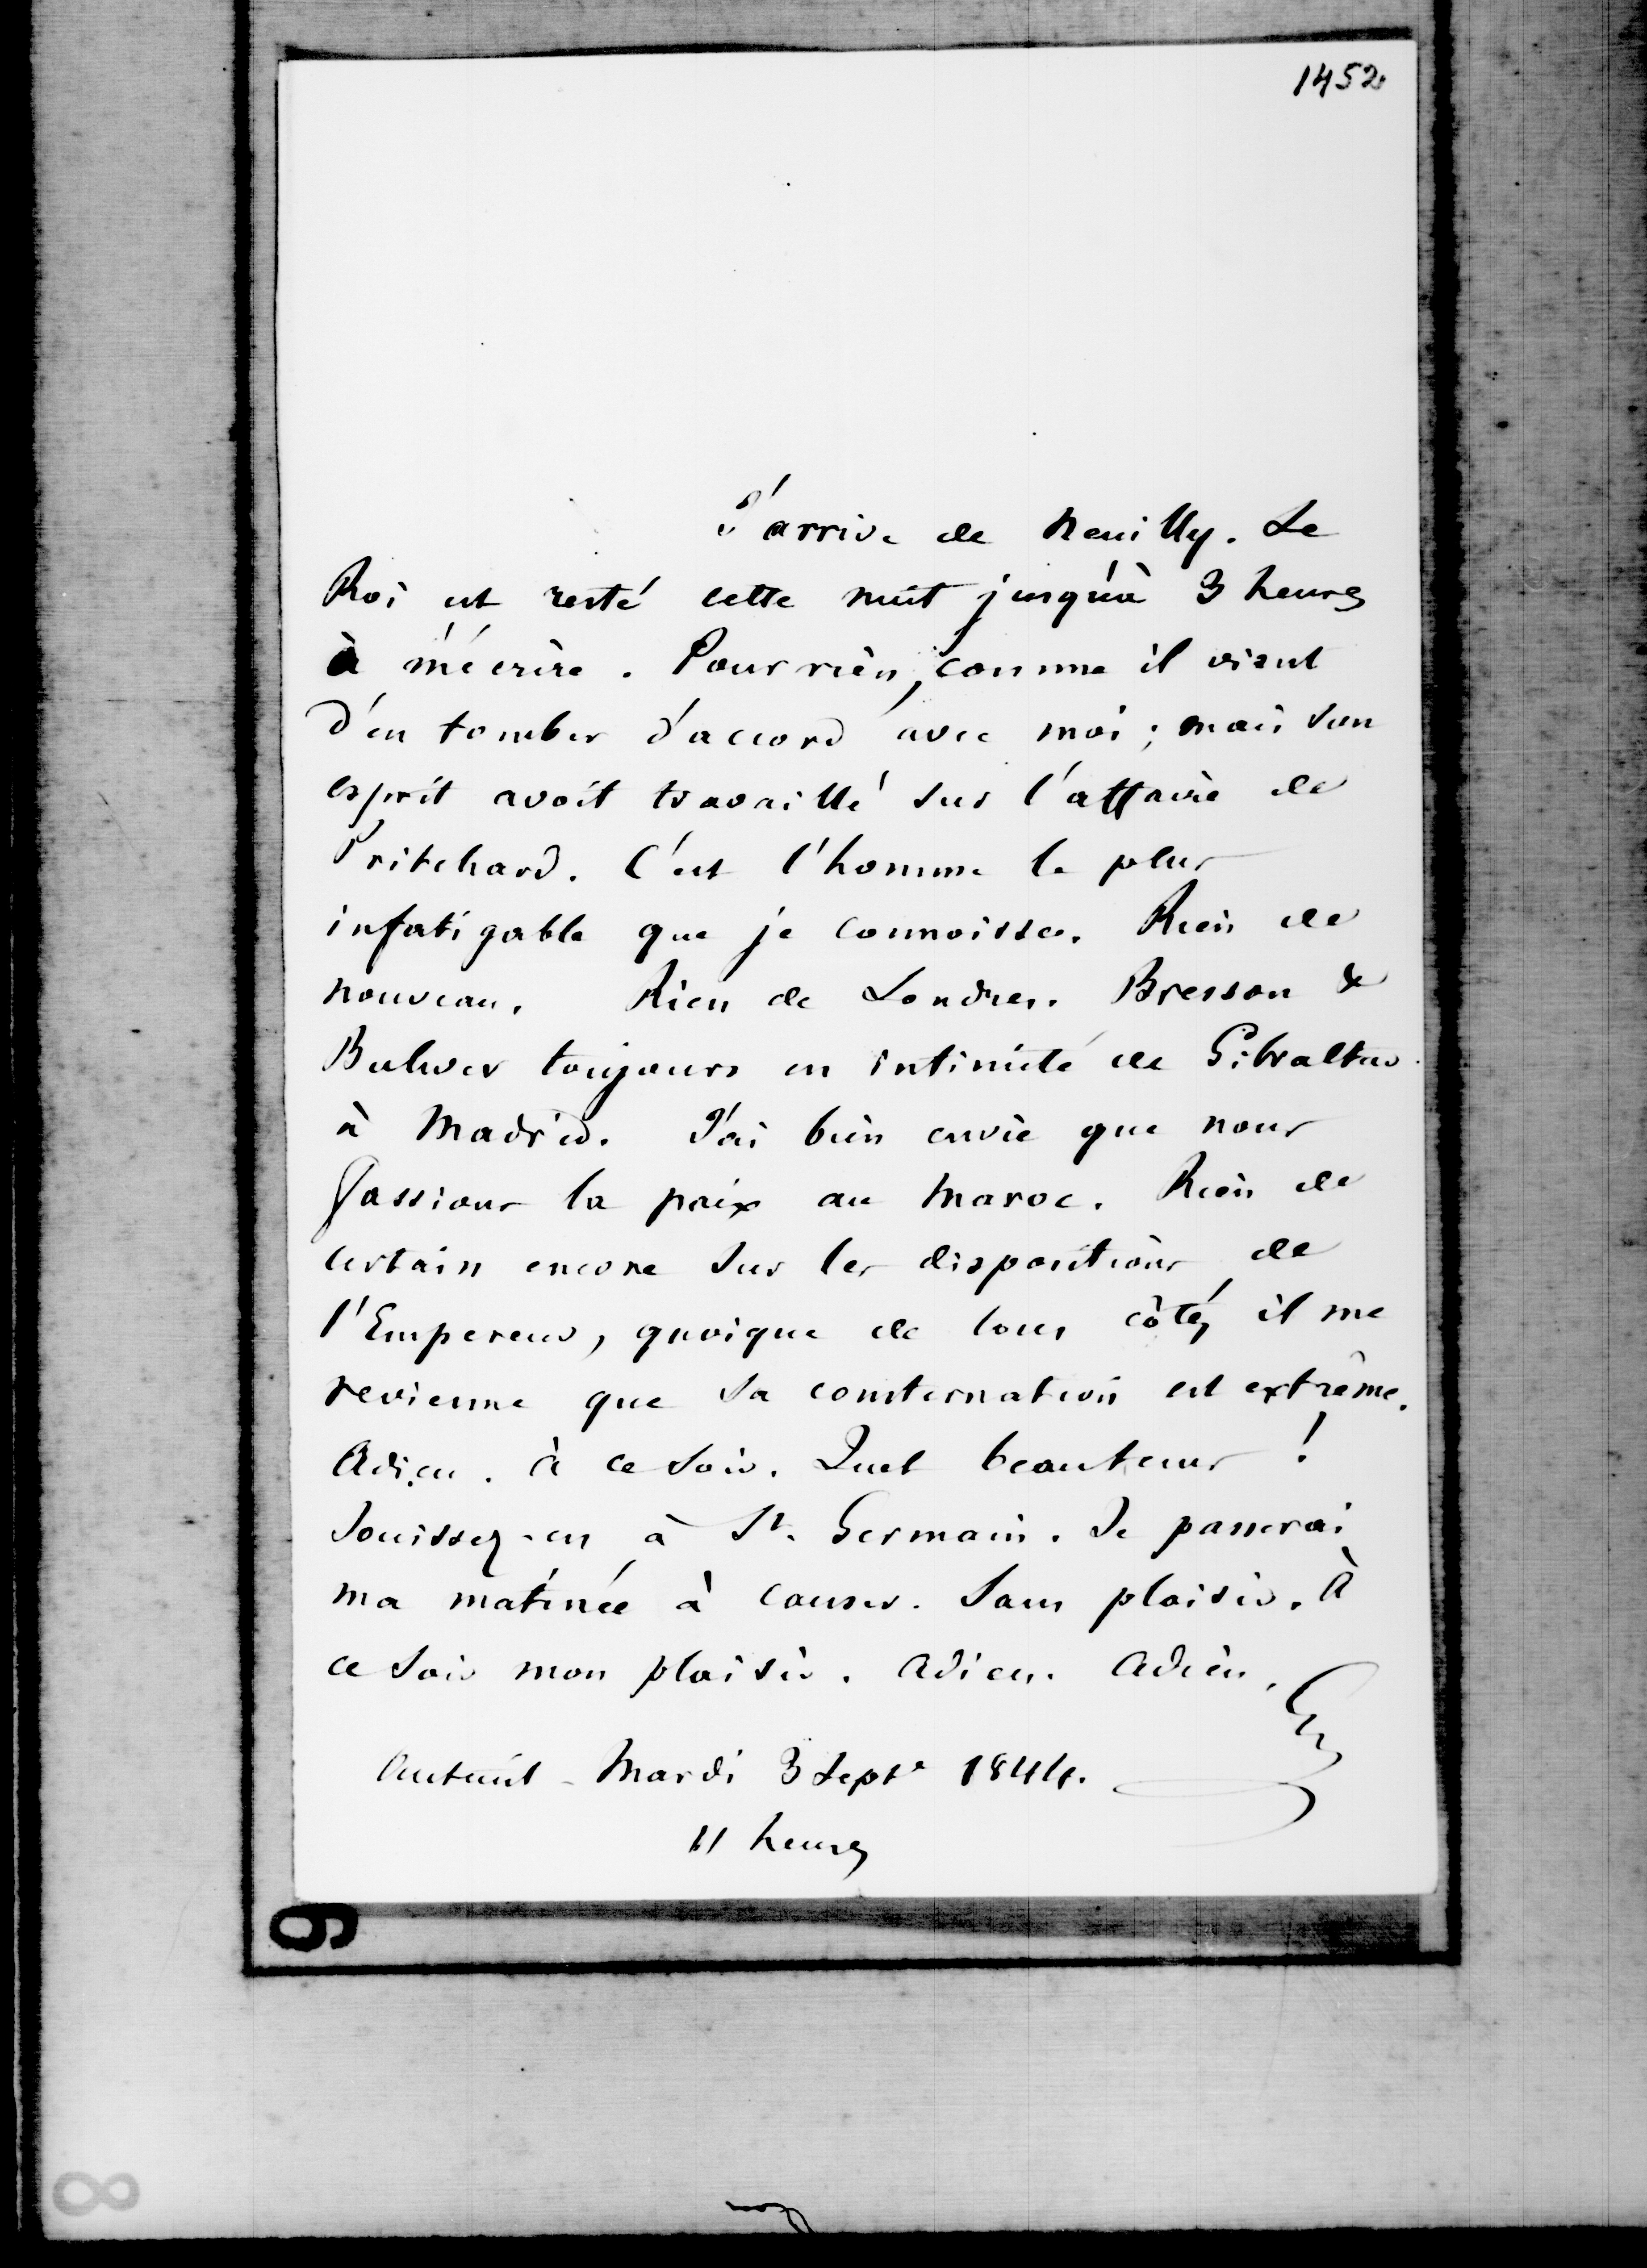 1452
J'arrive de Neuilly. Le
Roi est resté cette nuit jusqu'à 3 heures
à m'écrire. Pour rien, comme il vient
d'en tomber d'accord avec moi ; mais son
esprit avoit travaillé sur l'affaire de
Pritchard. C'est l'homme le plus
infatigable que je connoisse. Rien de
nouveau. Rien de Londres. Bresson &
Bulwer toujours en intimité de Gibraltar
à Madrid. J'ai bien envie que nous
fassions la paix au Maroc. Rien de
certain encore sur les dispositions de
l'Empereur, quoique de tous côtés il me
revienne que sa consternation est extrême.
Adieu. à ce soir. Quel beau tems !
Jouissez-en à St. Germain. Je passerai
ma matinée à causer. Sans plaisir. À
ce soir mon plaisir. Adieu. Adieu.
G
Auteuil - Mardi 3 Septe 1844.
11 heures
9
8